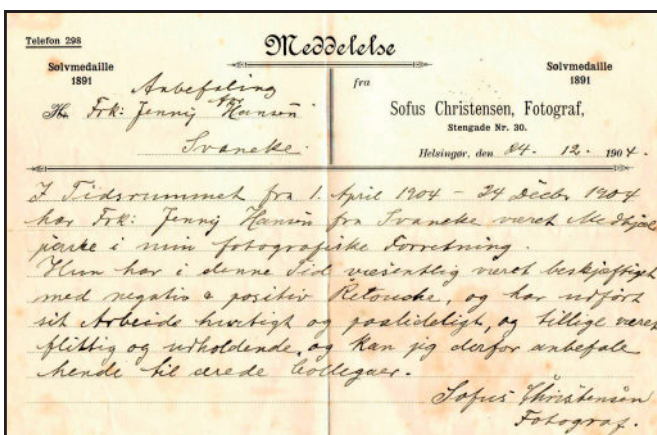 Telefon 298
Meddelelse
Sølvmedaille
1891
fra
Sølvmedaille
1891
Anbefaling
Frk: Jenny Hansen
Svaneke.
Sofus Christensen, Fotograf,
Stengade Nr. 30.
Helsingør, den 24. 12. 1904.
I Tidsrummet fra 1. April 1904 – 24 Decbr 1904
har Frk: Jenny Hansen fra Svaneke været Medhjæl
perske i min fotografiske Forretning.
Hun har i denne Tid væsentlig været beskjæftiget
med negativ & positiv Retouche, og har udført
sit Arbeide hurtigt og paalideligt, og tillige været
flittig og udholdende, og kan jeg derfor anbefale
hende til ærede Collegaer.
Sofus Christensen
Fotograf.